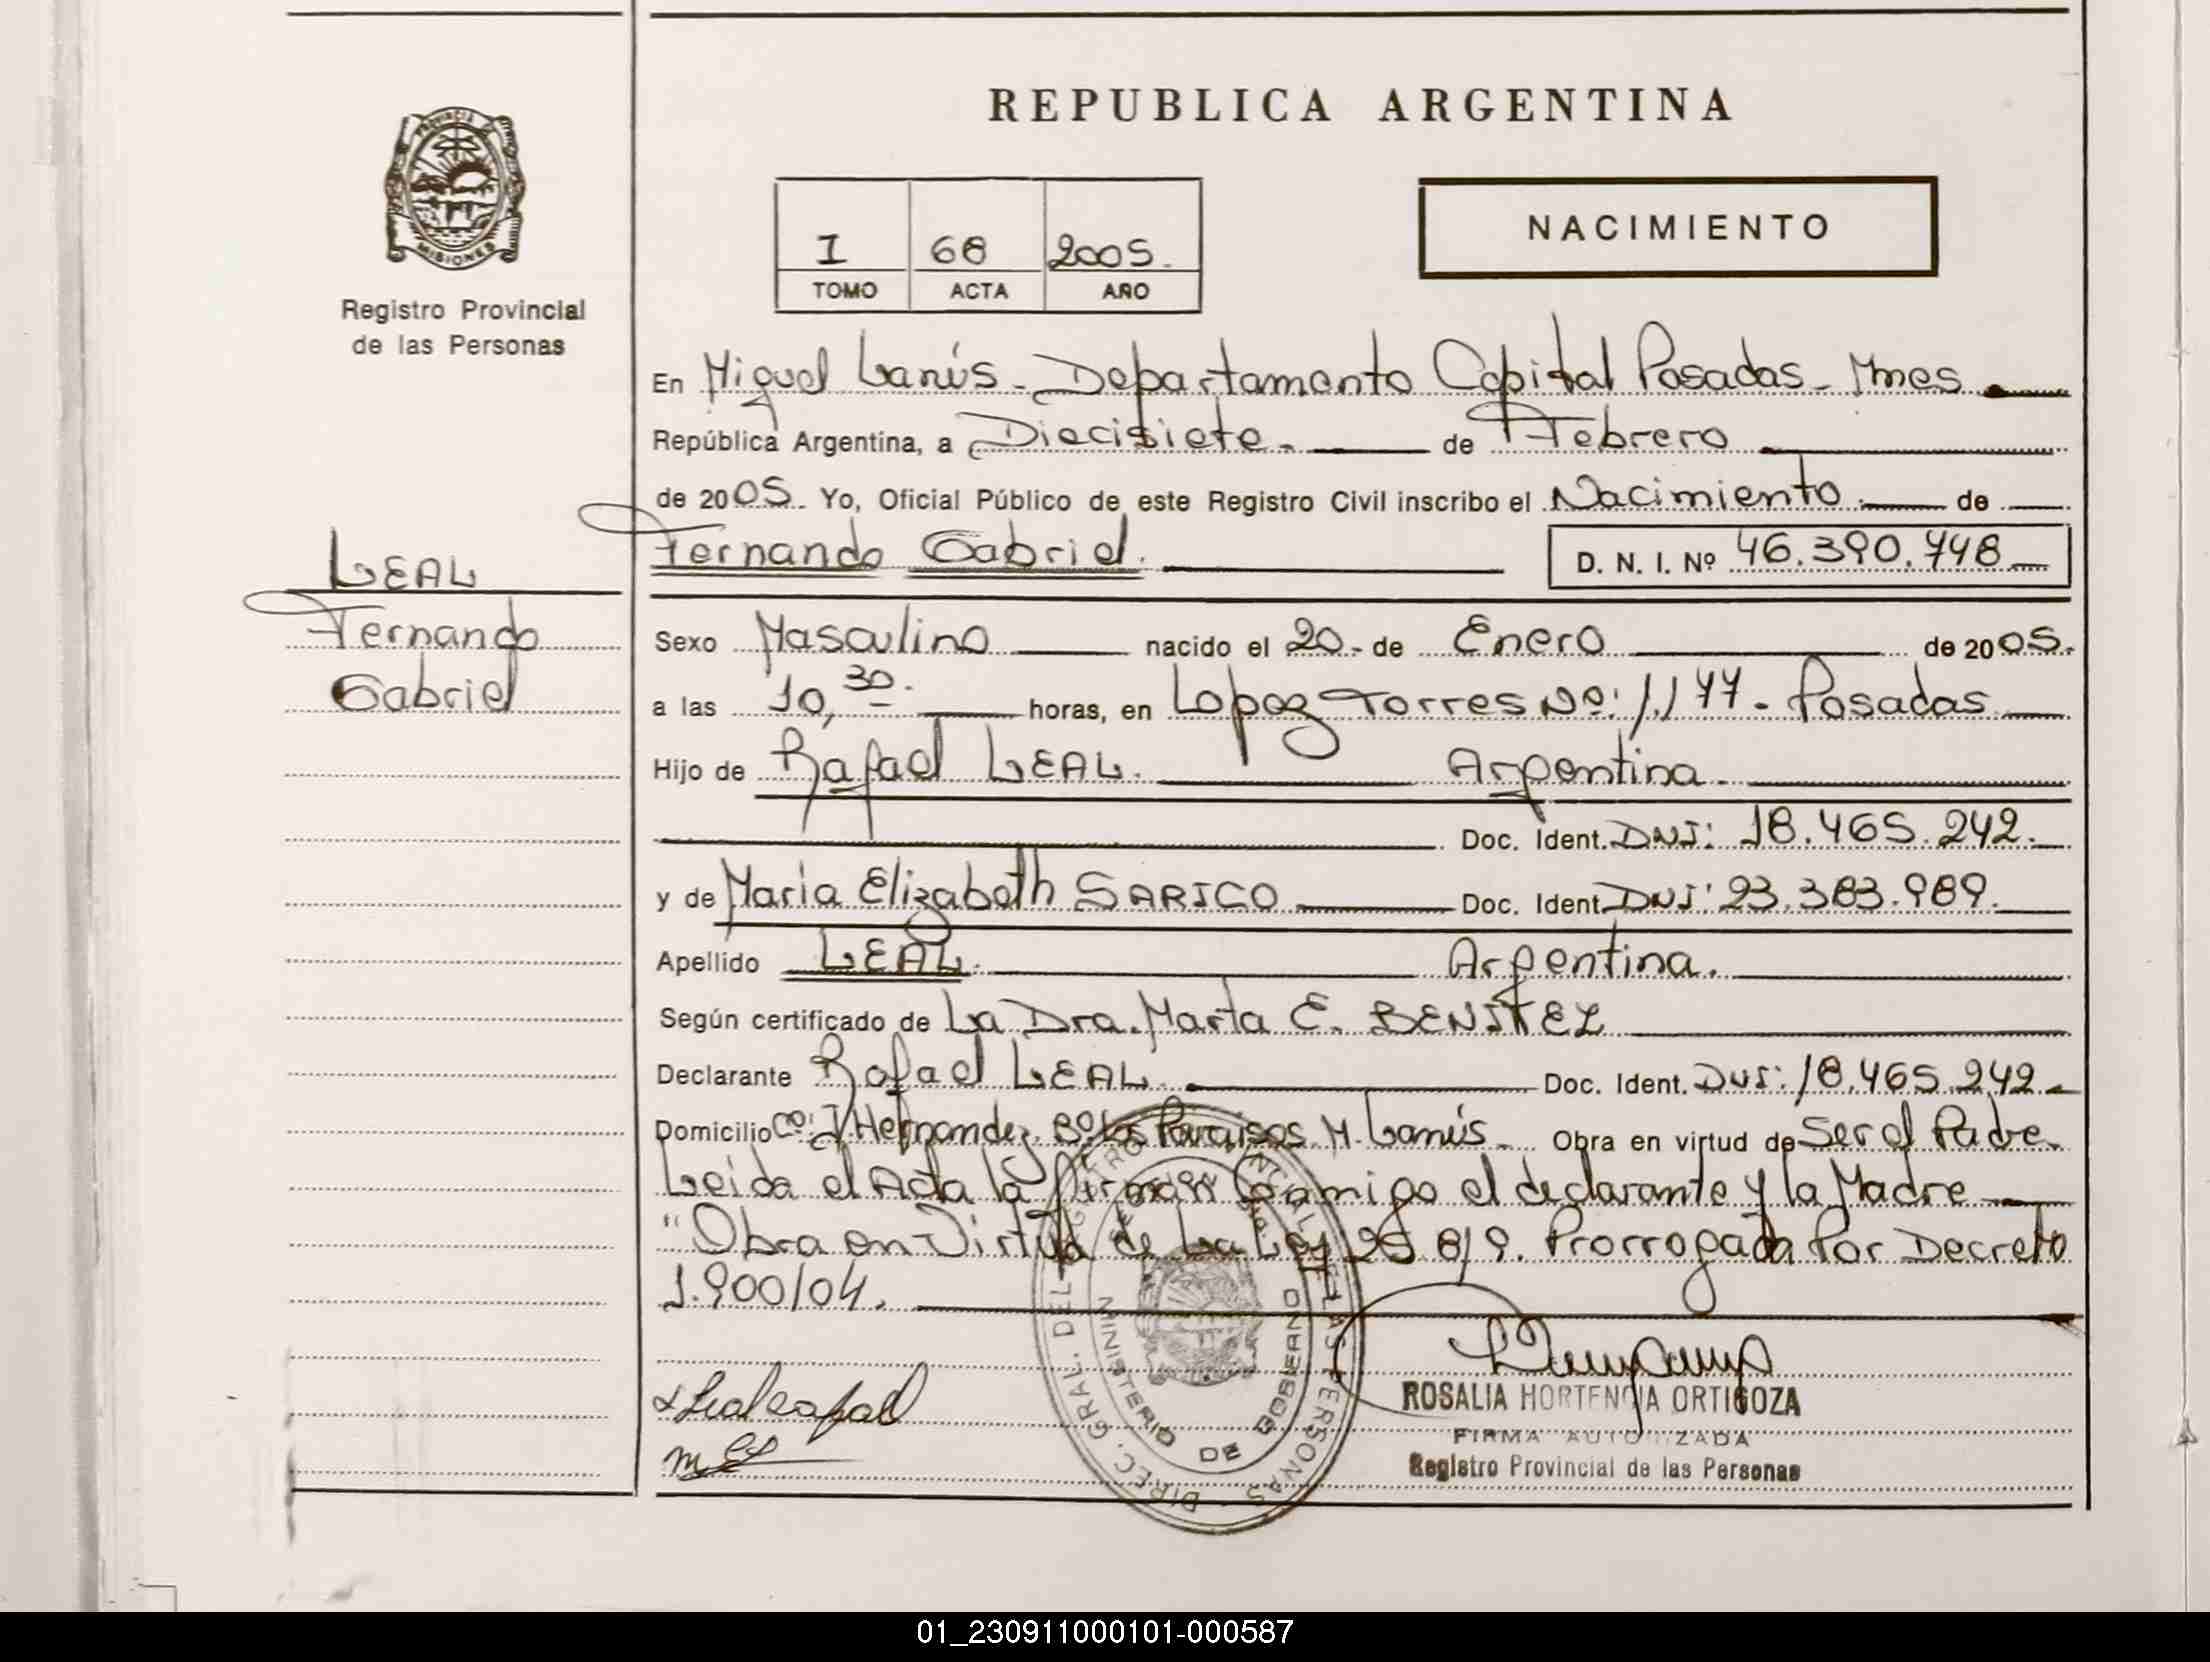 REPUBLICA ARGENTINA
PROVINCIA DE
MISIONES
Registro Provincial
de las Personas
I 68 2005.
TOMO ACTA AÑO
NACIMIENTO
En Miguel Lanús - Departamento Capital Posadas - Mnes
República Argentina, a Diecisiete. de Febrero
de 2005. Yo, Oficial Público de este Registro Civil inscribo el Nacimiento. de
Fernando Gabriel. D. N. I. Nº 46.390.748
LEAL
Fernando
Gabriel
Sexo Masculino nacido el 20 - de Enero de 2005.
a las 10,30. horas, en Lopez Torres Nº: 1.177 - Posadas
Hijo de Rafael LEAL. Argentina.
Doc. Ident. DNI: 18.465.242.
y de Maria Elizabeth SARICO Doc. Ident. DNI: 23.383.989.
Apellido LEAL. Argentina.
Según certificado de La Dra. Marta E. BENITEZ
Declarante Rafael LEAL. Doc. Ident. DNI: 18.465.242
Domicilio J. Hernandez Bº: Los Paraisos M. Lanús Obra en virtud de Ser el Padre.
Leida el Acta la firman Conmigo el declarante y la Madre
"Obra en Virtud de La Ley 25819. Prorrogada Por Decreto
1.900/04.
DIREC. GRAL. DEL REGISTRO PROVINCIAL DE LAS PERSONAS
MINISTERIO DE GOBIERNO
Leal Rafael
ROSALIA HORTENCIA ORTIGOZA
FIRMA AUTORIZADA
Registro Provincial de las Personas
01_230911000101-000587